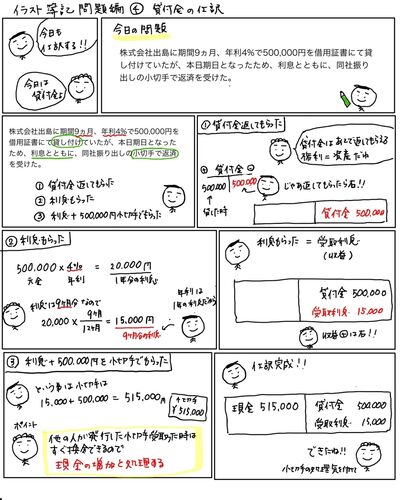 イラスト簿記 問題編 ④ 貸付金の仕訳
今日も
仕訳する!!
今日は
貸付金よ
今日の問題
株式会社出島に期間9ヵ月、年利4%で500,000円を借用証書にて貸
し付けていたが、本日期日となったため、利息とともに、同社振り
出しの小切手で返済を受けた。
株式会社出島に期間9ヵ月、年利4%で500,000円を借
用証書にて貸し付けていたが、本日期日となった
ため、利息とともに、同社振り出しの小切手で返済
を受けた。
① 貸付金返してもらった
② 利息もらった
③ 利息+500,000円小切手でもらった
① 貸付金返してもらった
貸付金はあとで返してもらえる
権利=資産だね
⊕ 貸付金 ⊖
500,000 500,000
↑
貸した時
じゃあ返してもらったら右!!
貸付金 500,000
② 利息もらった
500,000 × 4% = 20,000円
元金 年利 1年分の利息
利息は9ヶ月分なので
年利は
1年の利息だから
20,000 × 9ヶ月/12ヶ月 = 15,000円
9ヶ月分の利息
利息もらった = 受取利息
(収益)
貸付金 500,000
受取利息 15,000
収益⊕は右!!
③ 利息+500,000円を小切手でもらった
という事は小切手は
15,000+500,000 = 515,000円
小切手
¥515,000
ポイント
他の人が発行した小切手受取った時は
すぐ換金できるので
現金の増加と処理する
仕訳完成!!
現金 515,000 貸付金 500,000
受取利息 15,000
できたね!!
小切手の処理気を付けて